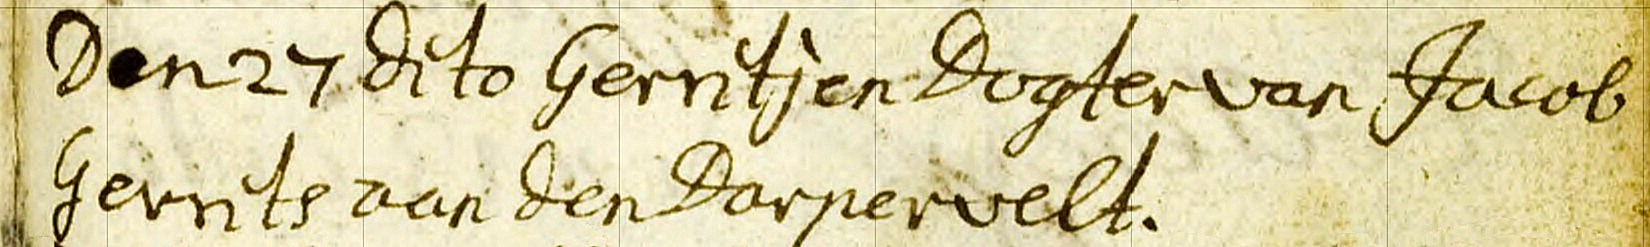 Den 27 dito Gerritjen Dogter van Jacob
Gerrits aan den Darpervelt.